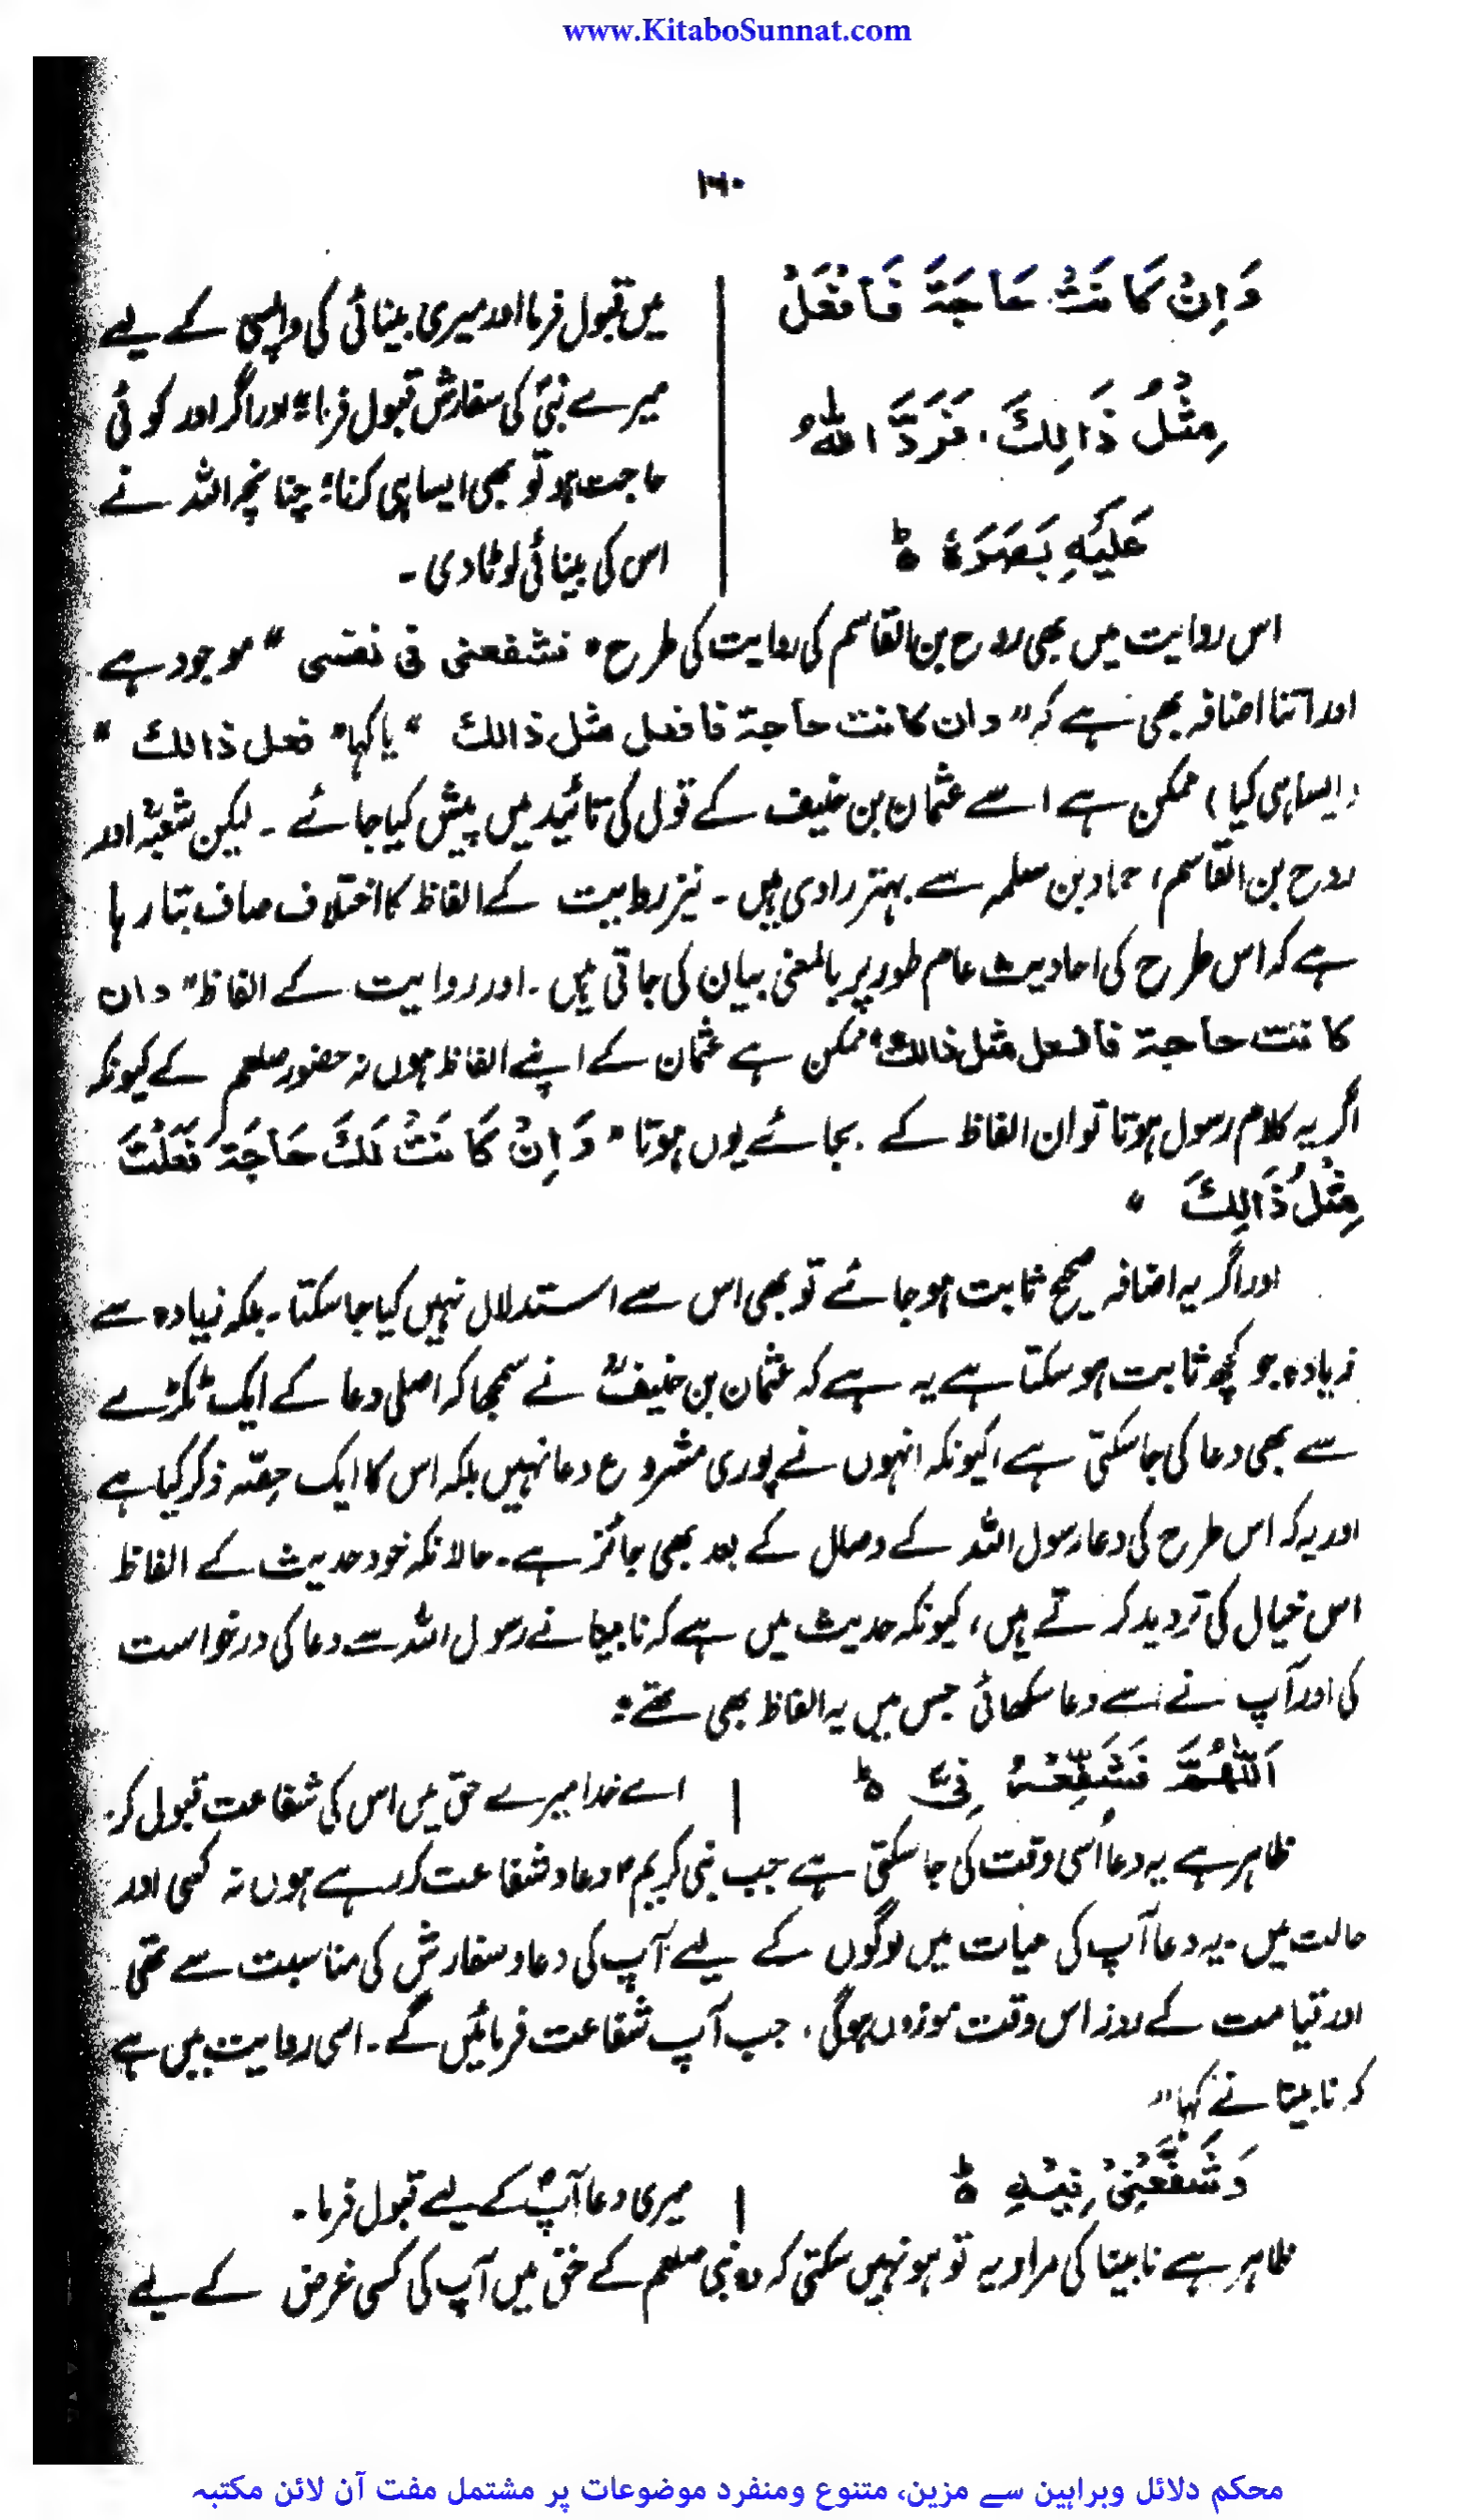 www.KitaboSunnat.com
۱۶۰
وَاِنْ كَانَتْ حَاجَةً فَافْعَلْ
مِثْلُ ذَالِكَ، فَرَدَّ اللّٰهُ
عَلَيْهِ بَصَرَهٗ ط
میں قبول فرما اور میری بینائی کی واپسی کے لیے
میرے نبیؐ کی سفارش قبول فرما؛ اور اگر اور کوئی
حاجت ہو تو بھی ایسا ہی کرنا؛ چنانچہ اللہ نے
اس کی بینائی لوٹا دی۔
اس روایت میں بھی روح بن القاسم کی روایت کی طرح " فشفعنی فی نفسی " موجود ہے
اور اتنا اضافہ بھی ہے کہ " وان كانت حاجة فافعل مثل ذالك " یا کہا " فعل ذالك "
(ایسا ہی کیا) ممکن ہے اسے عثمان بن حنیف کے قول کی تائید میں پیش کیا جائے ۔ لیکن شعبہؒ اور
روح بن القاسم، حماد بن سلمہ سے بہتر راوی ہیں ۔ نیز روایت کے الفاظ کا اختلاف صاف بتا رہا
ہے کہ اس طرح کی احادیث عام طور پر بالمعنی بیان کی جاتی ہیں ۔ اور روایت کے الفاظ " وان
كانت حاجة فافعل مثل ذالك " ممکن ہے عثمان کے اپنے الفاظ ہوں نہ حضور صلعم کے کیونکہ
اگر یہ کلام رسول ہوتا تو ان الفاظ کے بجائے یوں ہوتا " وَاِنْ كَانَتْ لَكَ حَاجَةٌ فَعَلْتَ
مِثْلُ ذَالِكَ "
اور اگر یہ اضافہ صحیح ثابت ہو جائے تو بھی اس سے استدلال نہیں کیا جا سکتا ۔ بلکہ زیادہ سے
زیادہ جو کچھ ثابت ہو سکتا ہے یہ ہے کہ عثمان بن حنیفؓ نے سمجھا کہ اصلی دعا کے ایک ٹکڑے
سے بھی دعا کی جا سکتی ہے، کیونکہ انہوں نے پوری مشروع دعا نہیں بلکہ اس کا ایک حِصّہ ذکر کیا ہے
اور یہ کہ اس طرح کی دعا رسول اللہ کے وصال کے بعد بھی جائز ہے ۔ حالانکہ خود حدیث کے الفاظ
اس خیال کی تردید کرتے ہیں، کیونکہ حدیث میں ہے کہ نابینا نے رسول اللہ سے دعا کی درخواست
کی اور آپ نے اسے دعا سکھائی جس میں یہ الفاظ بھی تھے :
اَللّٰهُمَّ فَشَفِّعْهُ فِیَّ ط
اے خدا میرے حق میں اس کی شفاعت قبول کر۔
ظاہر ہے یہ دعا اُسی وقت کی جا سکتی ہے جب نبی کریمؐ دعا و شفاعت کر رہے ہوں نہ کسی اور
حالت میں ۔ یہ دعا آپ کی حیات میں لوگوں کے لیے آپ کی دعا و سفارش کی مناسبت سے تھی
اور قیامت کے روز اس وقت موزوں ہو گی، جب آپ شفاعت فرمائیں گے ۔ اسی روایت میں ہے
کہ نابینا نے کہا "
وَشَفِّعْنِیْ فِیْهِ ط
میری دعا آپؐ کے لیے قبول فرما ۔
ظاہر ہے نابینا کی مراد یہ تو ہو نہیں سکتی کہ وہ نبی صلعم کے حق میں آپ کی کسی غرض کے لیے
محکم دلائل وبراہین سے مزین، متنوع ومنفرد موضوعات پر مشتمل مفت آن لائن مکتبہ